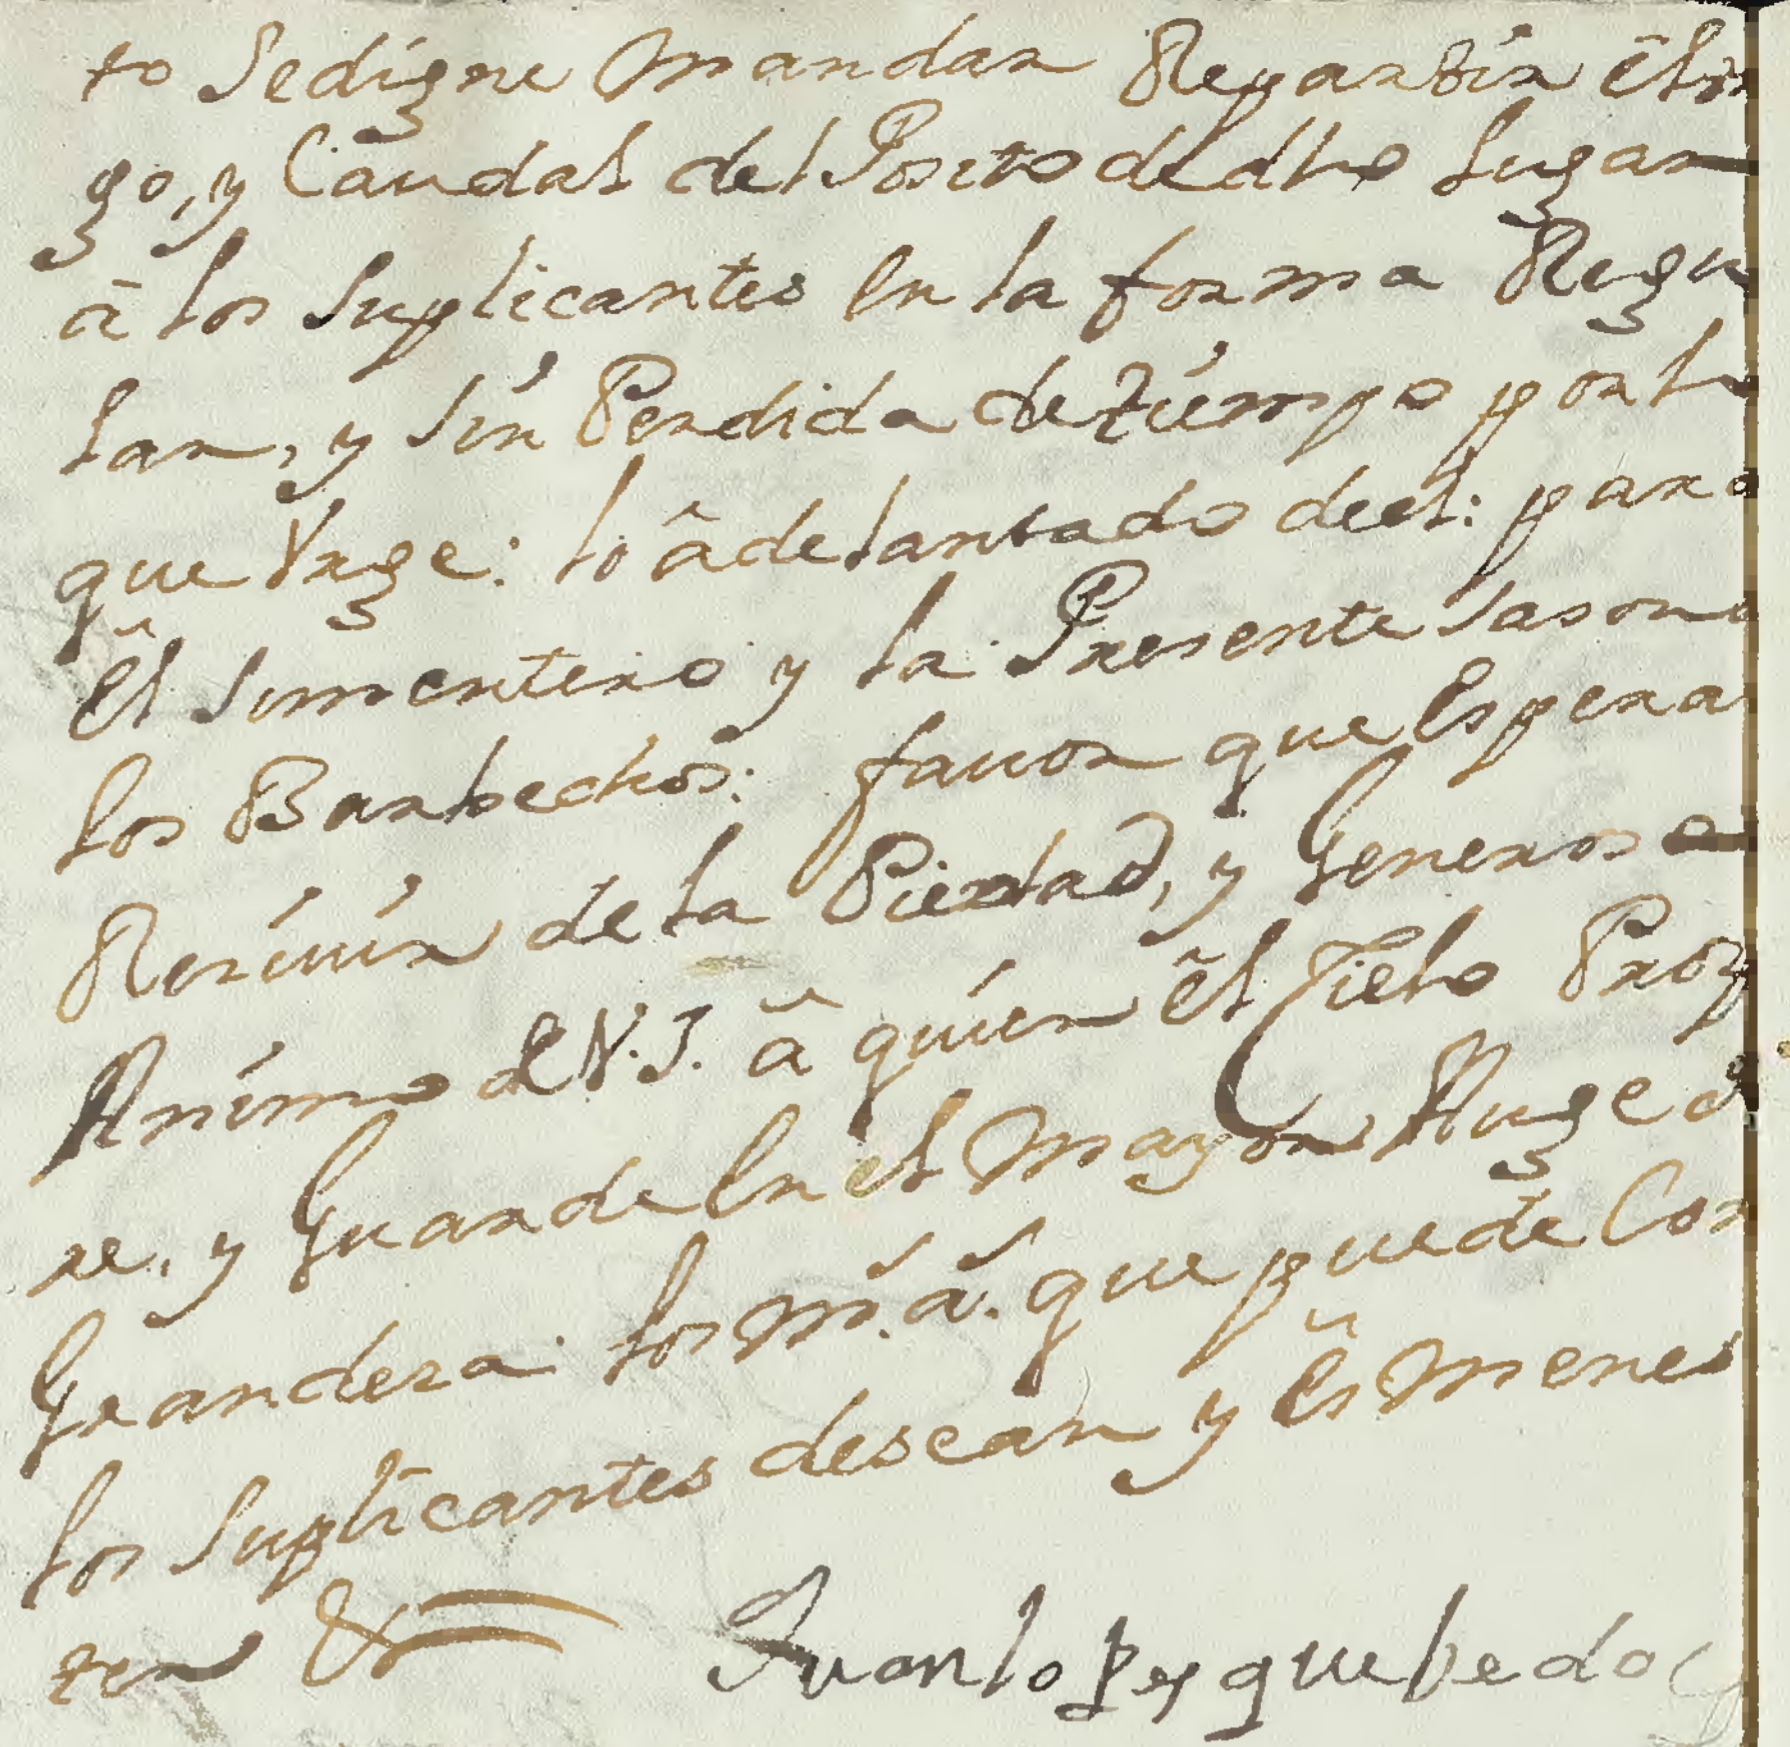 to Sedigne Mandar Repartir êl
go, y Caudal del Posito del dho Lugar
â los Suplicantes en la forma Regu
lar, y sin Perdida de tiempo por lo
que Urge: lo âdelantado de el: para
êl Simentero y la Presente Sason
los Barbechos: favor que Esperan
Resivir de la Piedad, y Generoso
Animo de V.S. â quien êl Cielo Prosp
re, y Guarde en el Mayor Auge
Grandeza los m.a. que puede Con
los Suplicantes desean y ês Menes
ter &
Juan lopez quebedo